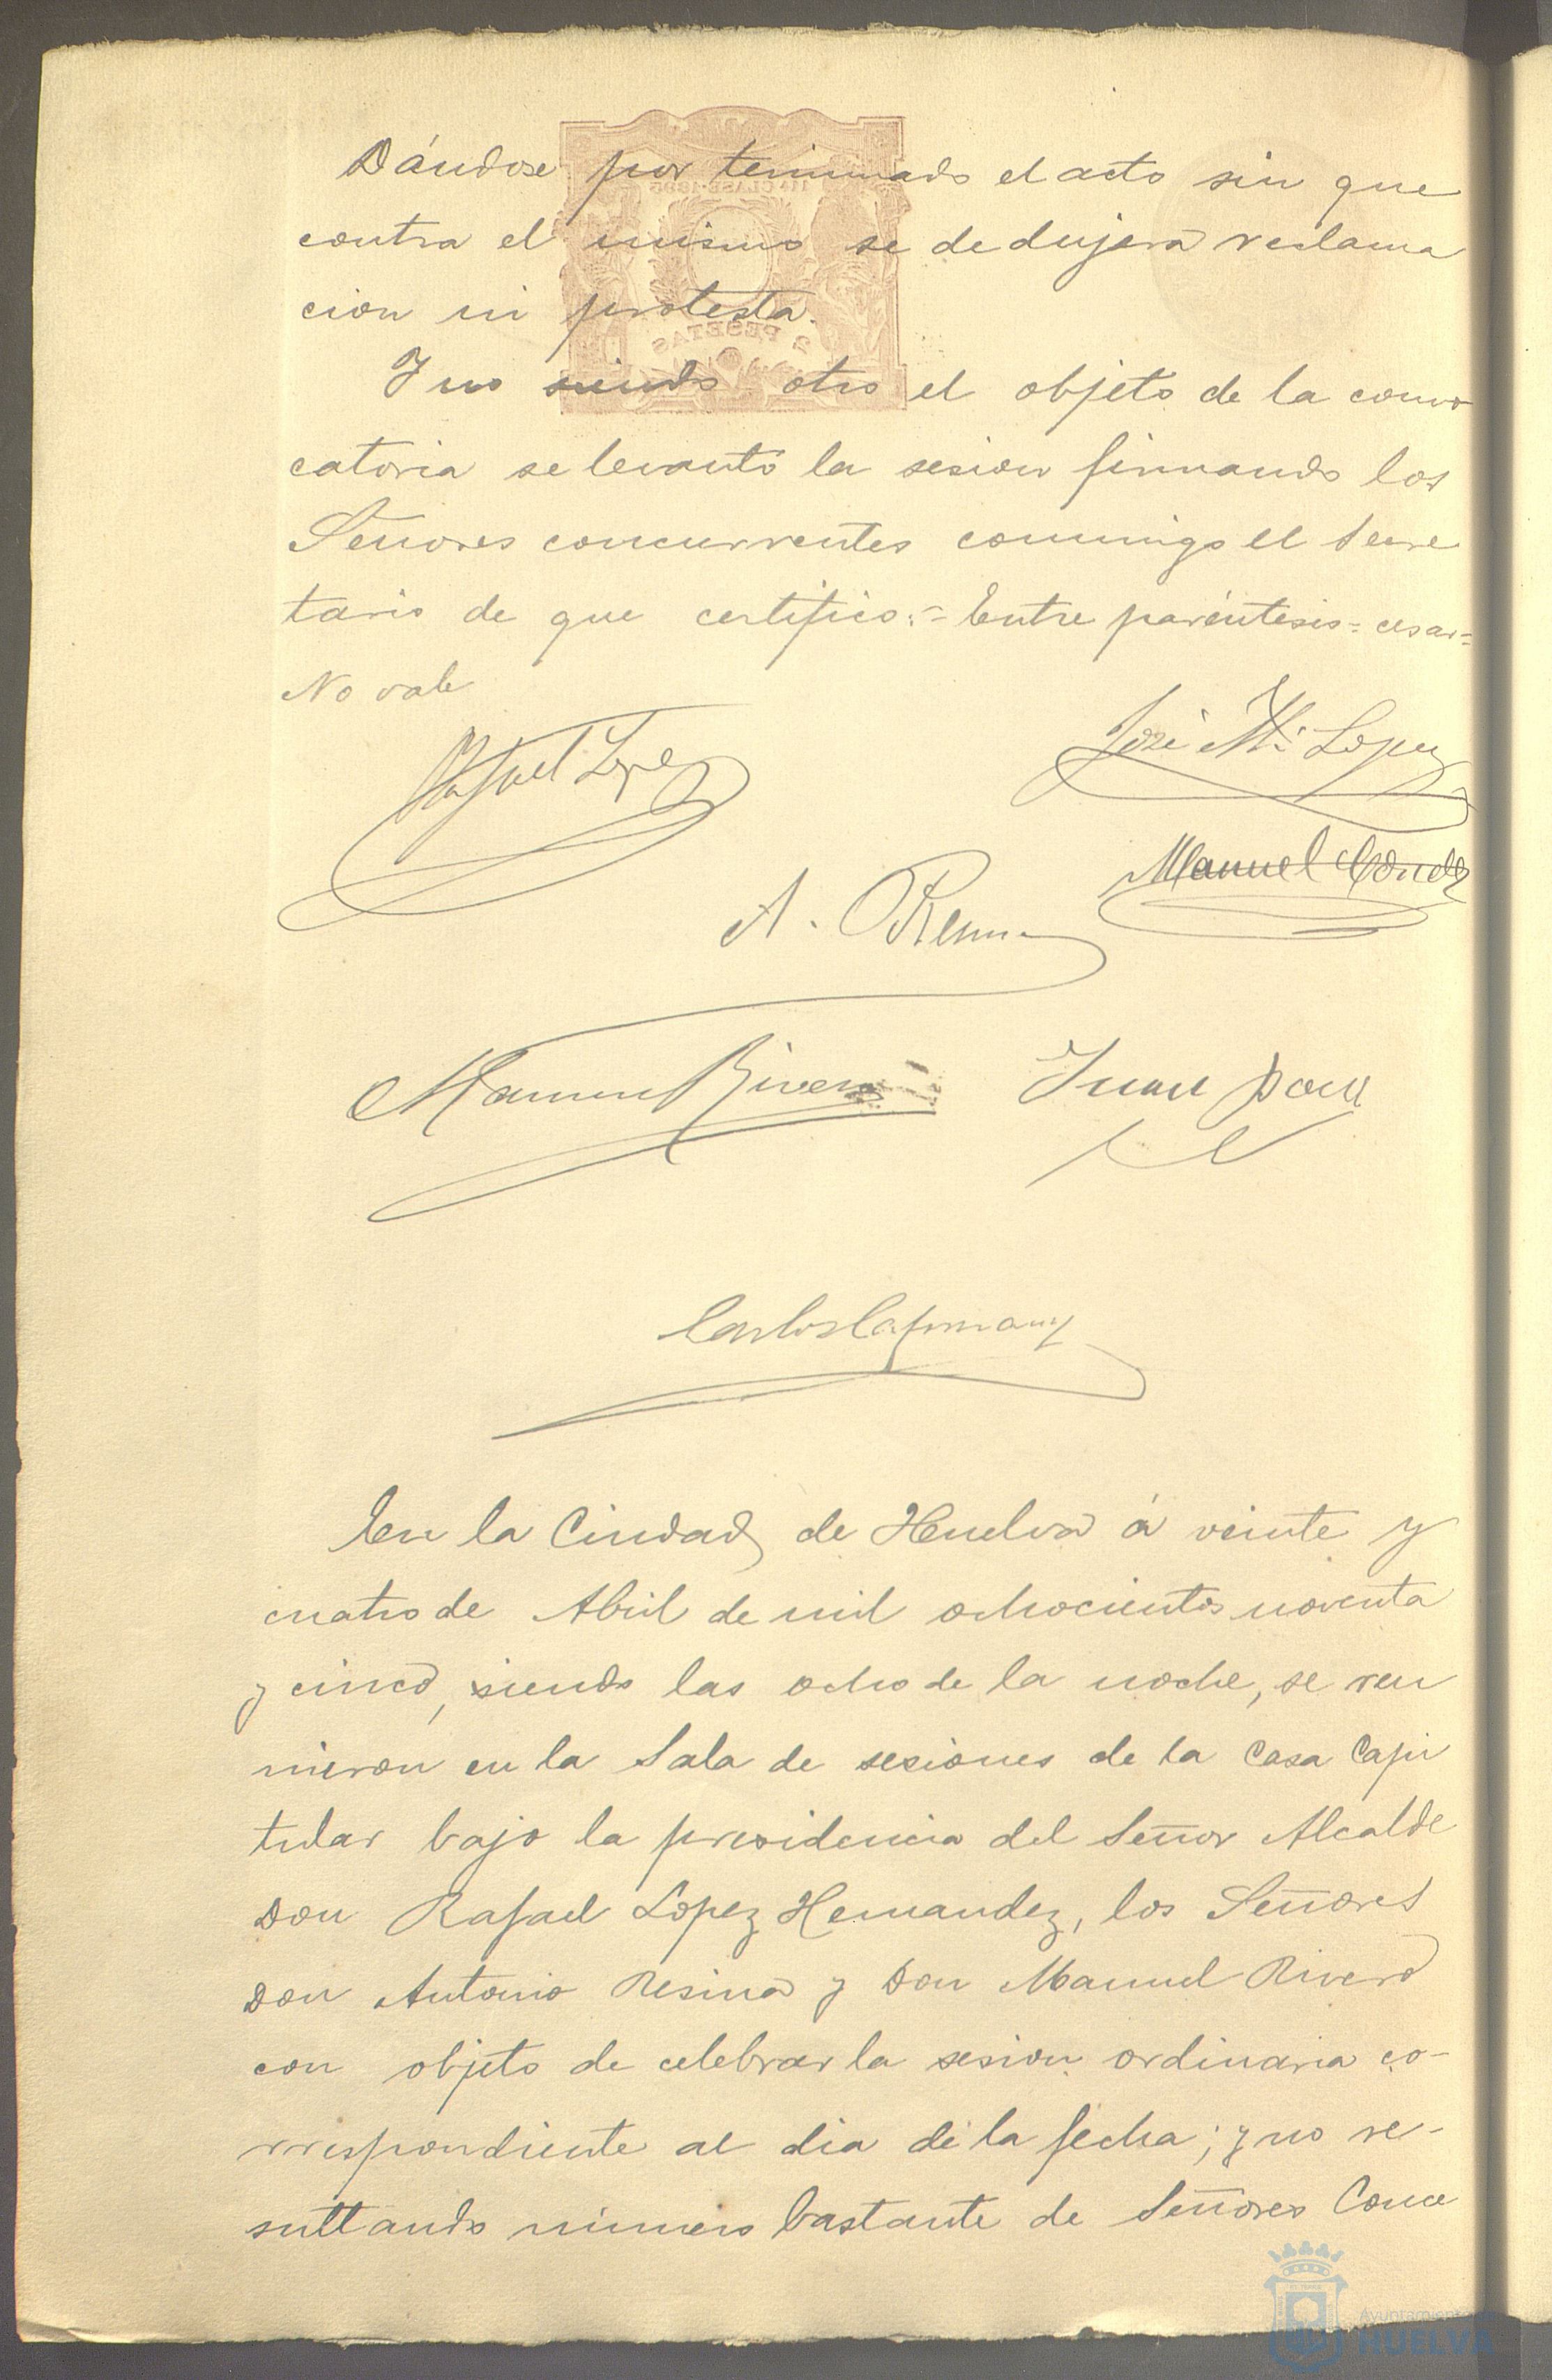 Dándose por terminado el acto sin que
contra el mismo se dedujera reclama
cion ni protesta.
Y no siendo otro el objeto de la convo
catoria se levantó la sesion firmando los
Señores concurrentes conmigo el Secre
tario de que certifico:= Entre paréntesis= cesar=
No vale
Rafael Lopez
José Mª Lopez
Manuel Conde
A. Resina
Manuel Rivero
Juan
Carlos Capmany
En la Ciudad de Huelva á veinte y
cuatro de Abril de mil ochocientos noventa
y cinco, siendo las ocho de la noche, se reu
nieron en la Sala de sesiones de la Casa Capi
tular bajo la presidencia del Señor Alcalde
Don Rafael Lopez Hernandez, los Señores
Don Antonio Resina y Don Manuel Rivero
con objeto de celebrar la sesion ordinaria co-
rrespondiente al dia de la fecha; y no re-
sultando número bastante de Señores Conce
Ayuntamiento
HUELVA